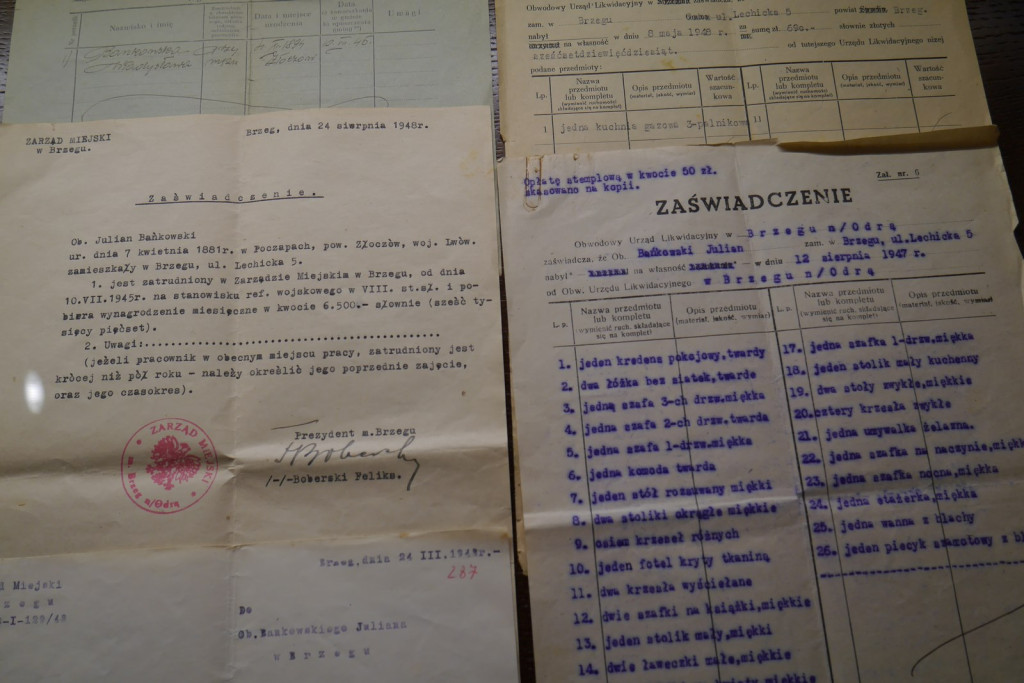 Nazwisko i imię
Data i miejsce
urodzenia
Uwagi
Obwodowy Urząd Likwidacyjny w
zam. w Brzegu ul. Lechicka 5 powiat Brzeg.
nabył na własność w dniu 8 maja 1948 r. za sumę zł. 690.- słownie złotych
sześćsetdziewięćdziesiąt. od tutejszego Urzędu Likwidacyjnego niżej
podane przedmioty:
Lp.
Nazwa
przedmiotu
lub kompletu
Opis przedmiotu
(materiał, jakość, wymiar)
Wartość
szacun-
kowa
Lp.
Nazwa
przedmiotu
lub kompletu
Opis przedmiotu
(materiał, jakość, wymiar)
Wartość
szacun-
kowa
1 jedna kuchnia gazcea 3-palnikowa 11
ZARZĄD MIEJSKI
w Brzegu.
Brzeg, dnia 24 sierpnia 1948r.
Zaświadczenie.
Ob. Julian Bańkowski
ur. dnia 7 kwietnia 1881r. w Poczapach, pow. Złoczów, woj. Lwów.
zamieszkały w Brzegu, ul. Lechicka 5.
1. jest zatrudniony w Zarządzie Miejskim w Brzegu, od dnia
10.VII.1945r. na stanowisku ref. wojskowego w VIII. st.sł. i po-
biera wynagrodzenie miesięczne w kwocie 6.500.- słownie (sześć ty-
sięcy pięćset).
2. Uwagi:
(jeżeli pracownik w obecnym miejscu pracy, zatrudniony jest
krócej niż pół roku - należy określić jego poprzednie zajęcie,
oraz jego czasokres).
Prezydent m.Brzegu
/-/-Boberski Feliks.
ZARZĄD MIEJSKI
m. Brzeg n/Odrą
Brzeg, dnia 24 III.1948r.-
287
Miejski
Do
Ob.Bańkowskiego Juliana
w Brzegu
Opłatę stemplową w kwocie 50 zł.
skasowano na kopii.
Zał. nr. 6
ZAŚWIADCZENIE
Obwodowy Urząd Likwidacyjny w Brzegu n/Odrą
zaświadcza, że Ob. Bańkowski Julian zam. w Brzegu, ul.Lechicka 5
nabył na własność w dniu 12 sierpnia 1947 r.
od Obw. Urzędu Likwidacyjnego w Brzegu n/Odrą
L.p.
Nazwa przedmiotu
lub kompletu
(wymienić ruch. składające
się na komplet)
Opis przedmiotu
(materiał, jakość, wymiar)
L.p.
Nazwa przedmiotu
lub kompletu
(wymienić ruch. składające
się na komplet)
Opis przedmiotu
(materiał, jakość, wymiar)
1. jeden kredens pokojowy,twardy
2. dwa łóżka bez siatek,twarde
3. jedna szafa 3-ch drzw.miękka
4. jedna szafa 2-ch drzw.twarda
5. jedna szafa 1-drzw.miękka
6. jedna komoda twarda
7. jeden stół rozsuwany miękki
8. dwa stoliki okrągłe miękkie
9. osiem krzeseł różnych
10. jeden fotel kryty tkaniną
11. dwa krzesła wyściełane
12. dwie szafki na książki,miękkie
13. jeden stolik mały,miękki
14. dwie ławeczki małe,miękkie
17. jedna szafka 1-drzw.miękka
18. jeden stolik mały kuchenny
19. dwa stoły zwykłe,miękkie
20. cztery krzesła zwykłe
21. jedna umywalka żelazna.
22. jedna szafka na naczynie,miękk
23. jedna szafka nocna,miękka
24. jedna etażerka,miękka
25. jedna wanna z blachy
26. jeden piecyk szamotowy z bl